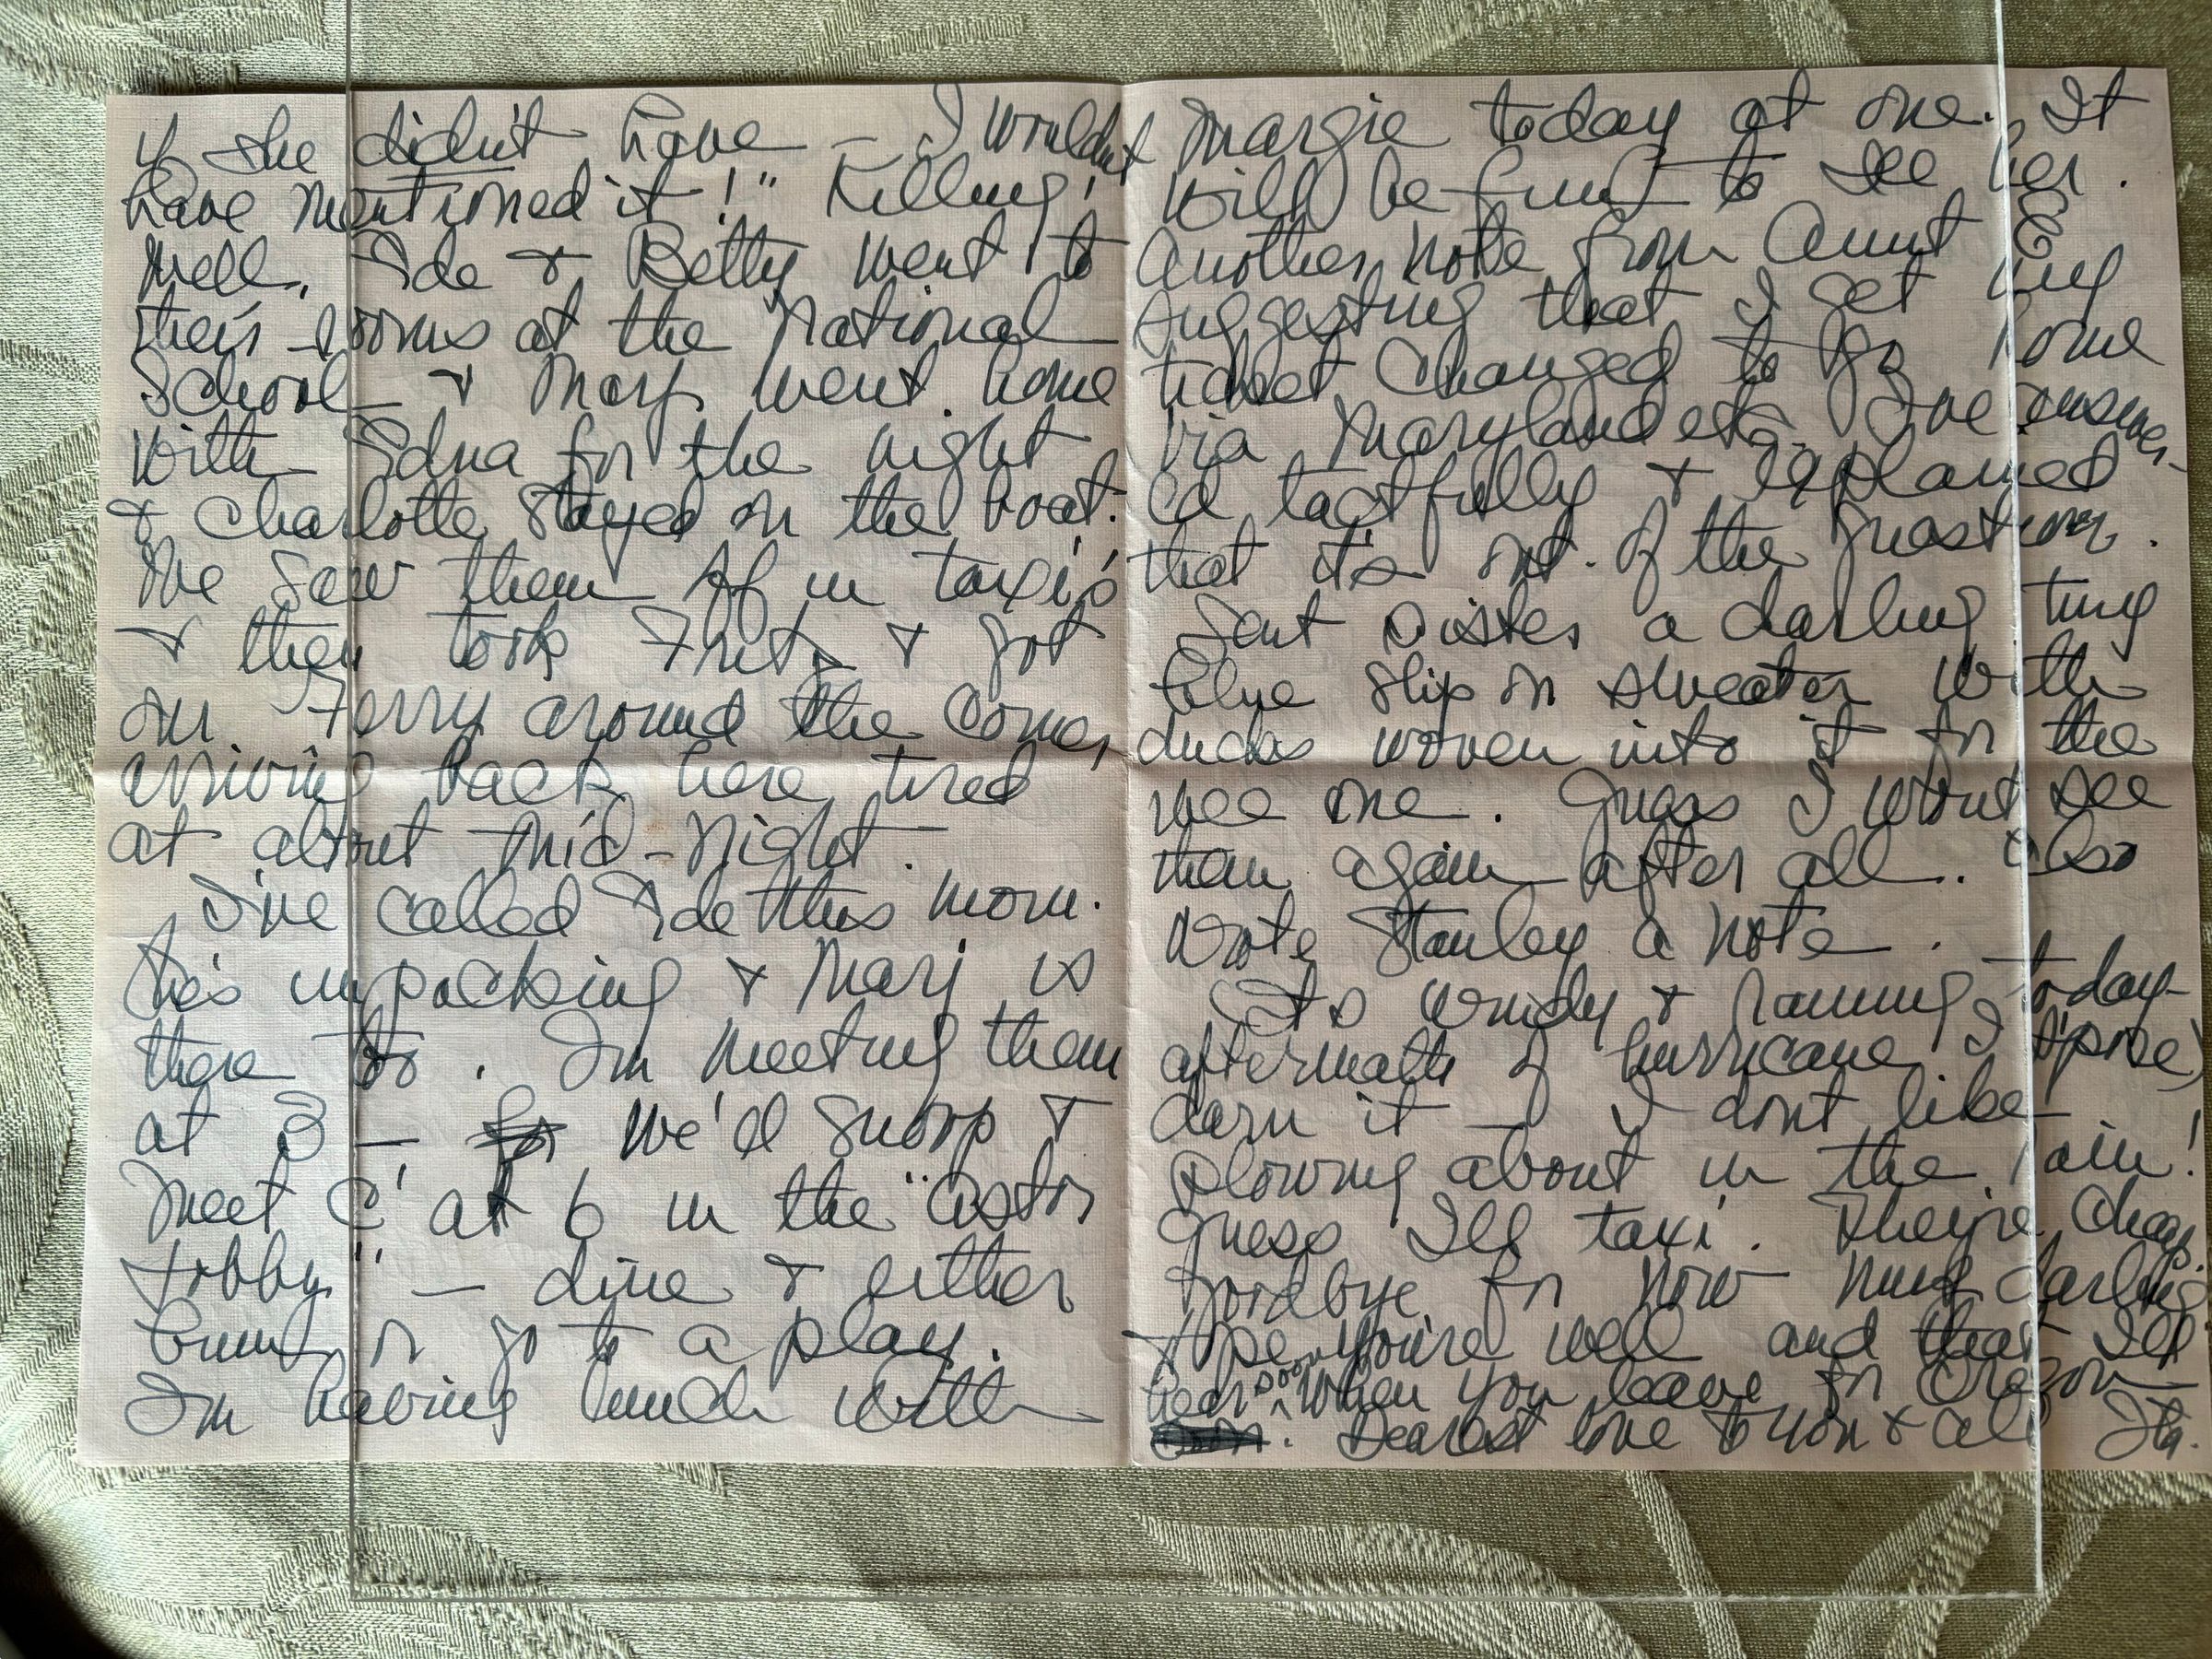 if she didn't have — I wouldn't
have mentioned it!" Killing!
Well, Ide & Betty went to
their rooms at the National
School & Marj went home
with Edna for the night
& Charlotte stayed on the boat.
We saw them off in taxi's
& then took Fritz & got
our Ferry around the corner,
arriving back here tired
at about mid-night.
I've called Ide this morn.
She's unpacking & Marj is
there too. I'm meeting them
at 3 — We'll snoop &
meet C' at 6 in the "Astor
Lobby" — dine & either
bum or go to a play.
I'm having lunch with
Margie today at one. It
will be fun to see her.
Another note from Aunt E
suggesting that I get my
ticket changed to go home
via Maryland etc. I've answer-
ed tactfully & explained
that it's out of the question.
Sent Sister a darling tiny
blue slip on sweater with
ducks woven into it for the
wee one. Guess I won't see
them again after all. Also
wrote Stanley a note.
It's windy & raining today—
aftermath of hurricane I s'pose,
darn it — I dont like
plowing about in the rain!
Guess I'll taxi. They're cheap.
Goodbye for now Mug darling
Hope you're well and that I'll
hear soon when you leave for Oregon—
Dearest love to you & all